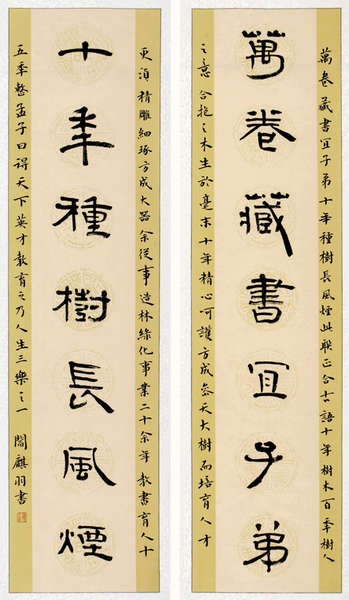 萬卷藏書宜子弟十年種樹長風煙此聯正合古語十年樹木百年樹人
萬卷藏書宜子弟
之意合抱之木生於毫末十年精心可護方成參天大樹而培育人才
更須精雕細琢方成大器余從事造林綠化事業二十余年教書育人十
十年種樹長風煙
五年整孟子曰得天下英才教育之乃人生三樂之一 閻麒羽書